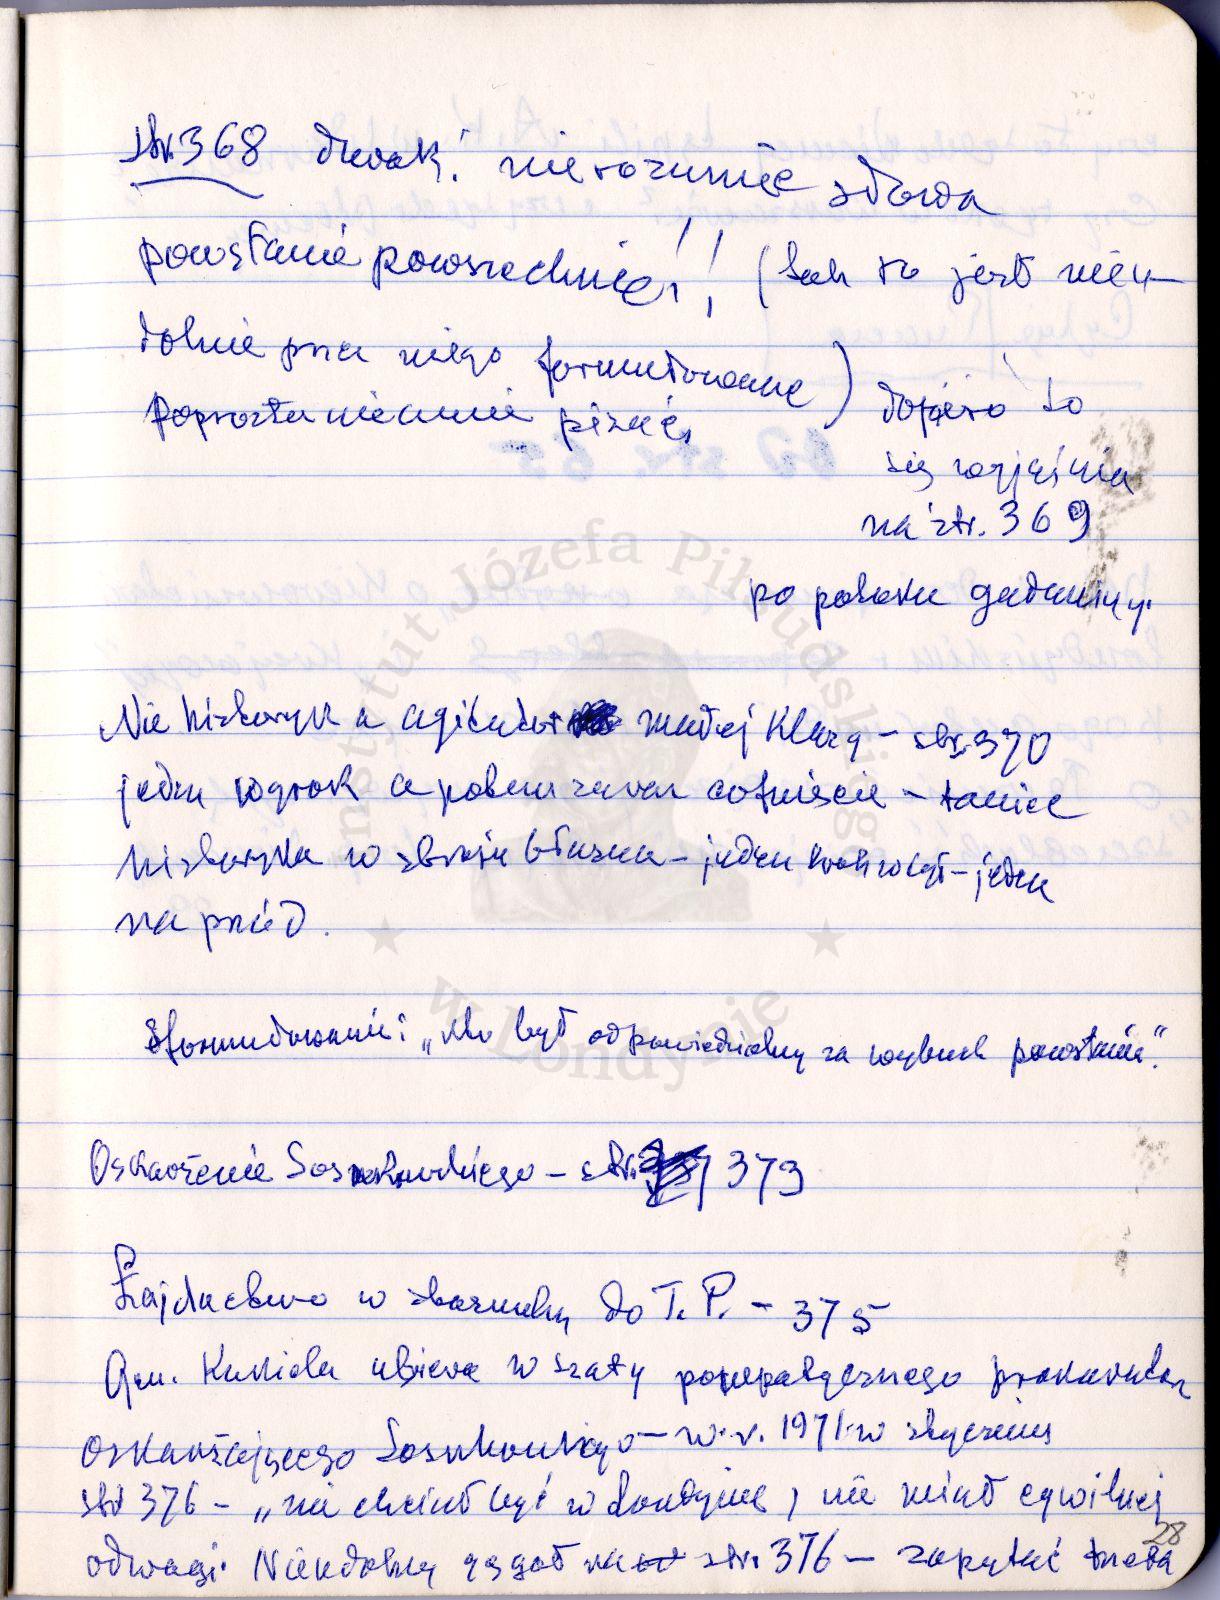 str. 368 dwoki nierozumiec słowa
powstanie powszechnie!! (tak to jest nieu-
dolnie przez niego formułowane)
Poprostu nie umie pisać,
dopiero to
się wyjaśnia
na str. 369
po potoku gadaniny.
Nie historyk a agitator małej klasy – str. 370
jeden wyrok a potem zaraz cofnięcie – taniec
historyka w stroju błazna – jeden krok w tył – jeden
na przód.
Sformułowanie: „kto był odpowiedzialny za wybuch powstania".
Oskarżenie Sosnkowskiego – str. 373
Łajdactwo w stosunku do T. P. – 375
Gen. Kukiela ubiera w szaty prokuratora
oskarżającego Sosnkowskiego – w r. 1971 w styczniu
str 376 – „nie chciał być w Londynie, nie miał cywilnej
odwagi. Nieudolny na str. 376 – zapytać trzeba
28
Instytut Józefa Piłsudskiego
w Londynie